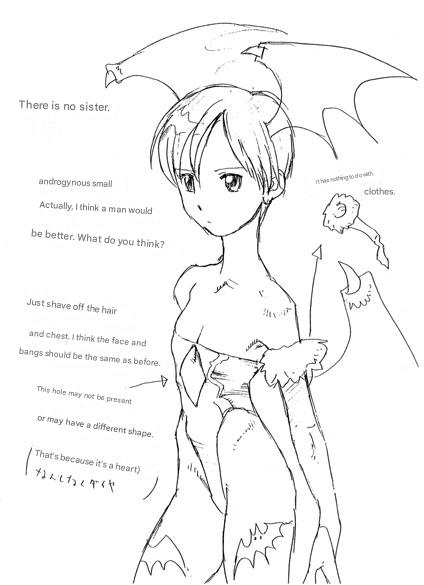 There is no sister.
androgynous small
Actually, I think a man would
be better. What do you think?
It has nothing to do with
clothes.
Just shave off the hair
and chest. I think the face and
bangs should be the same as before.
This hole may not be present
or may have a different shape.
(That's because it's a heart)